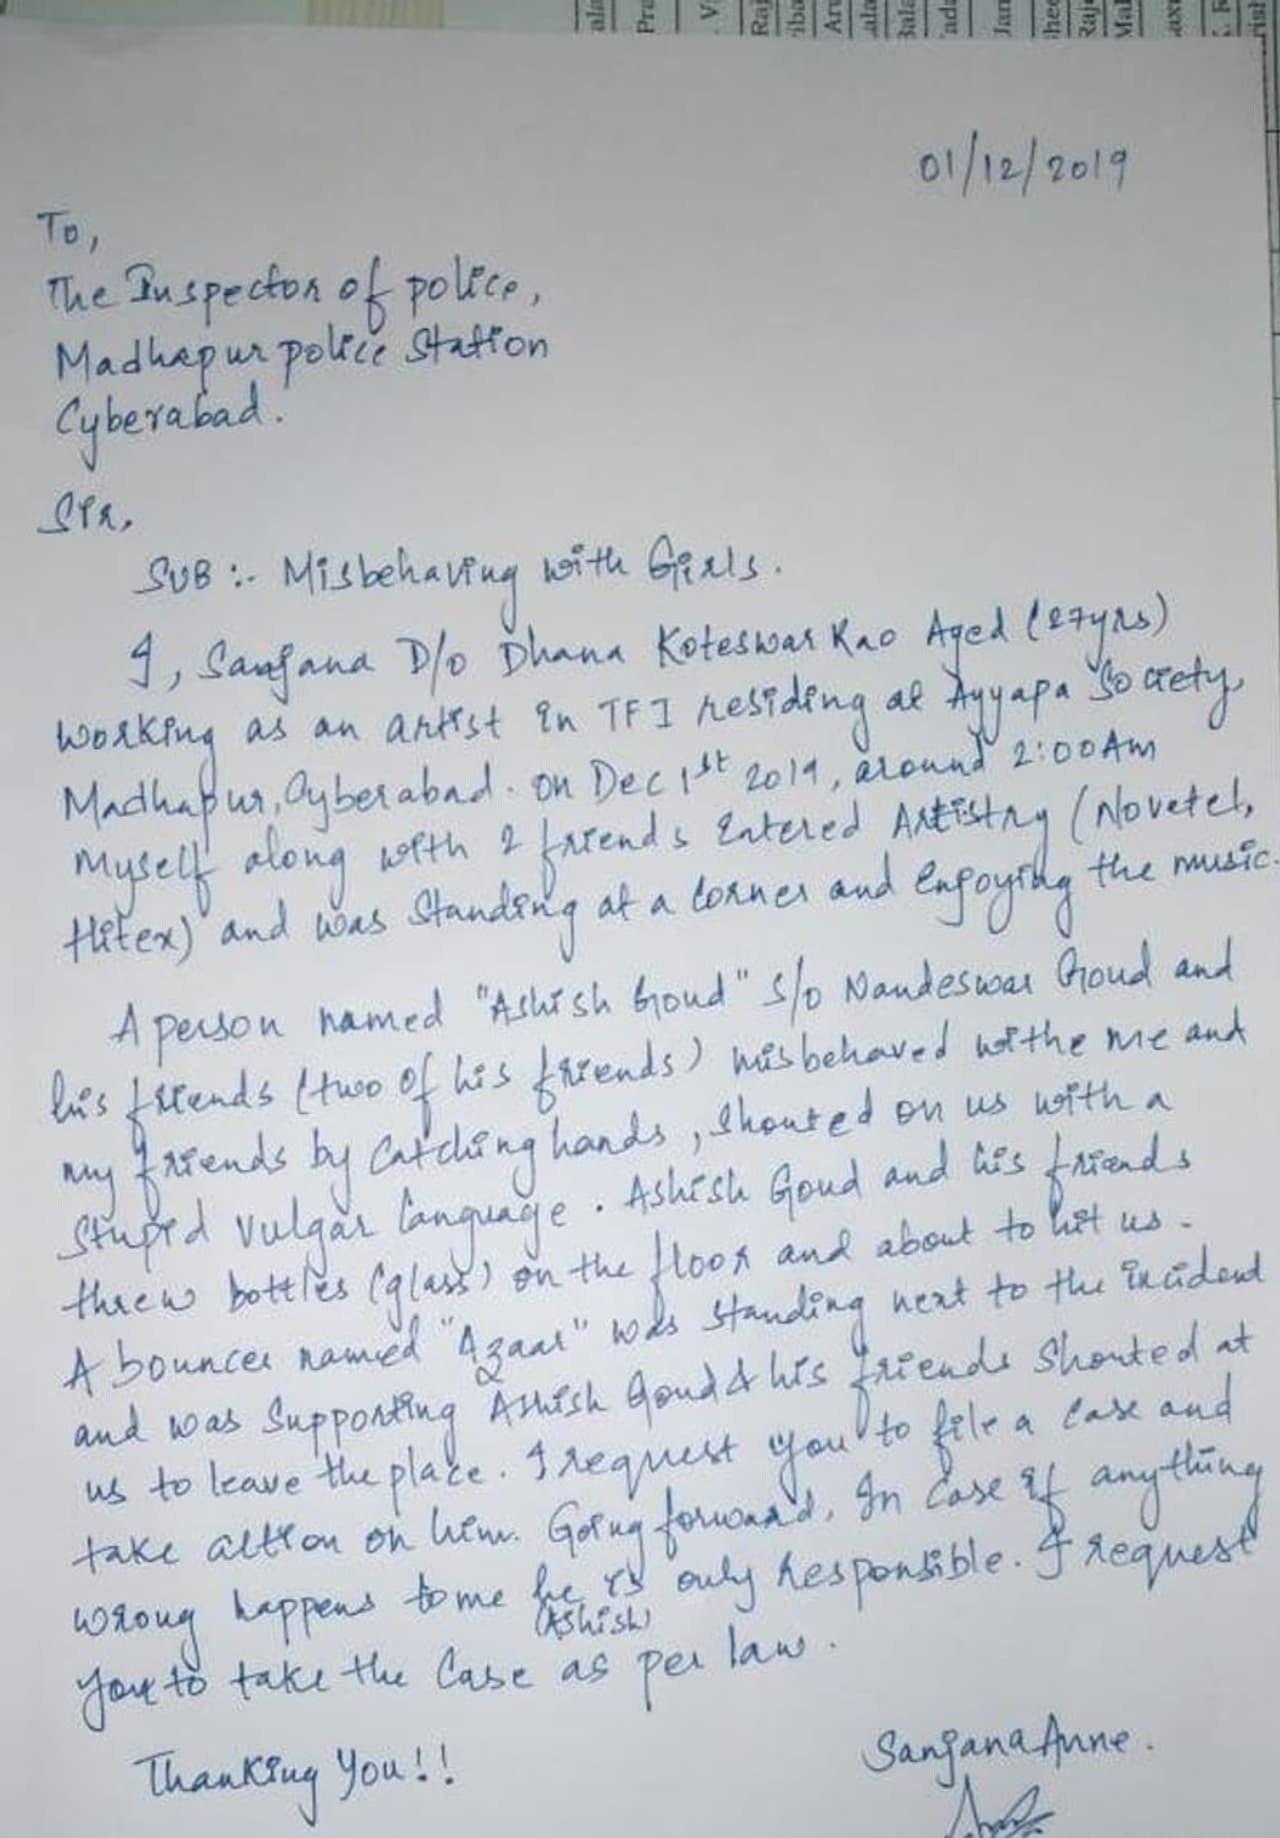 01/12/2019
To,
The Inspector of police,
Madhapur police Station
Cyberabad.
Sir,
SUB :- Misbehaving with Girls.
I, Sanjana D/o Dhana Koteswar Rao Aged (27yrs)
working as an artist in TFI residing at Ayyapa Society,
Madhapur, Cyberabad. on Dec 1st 2019, around 2:00Am
Myself along with 2 friends Entered Artistry (Novetel,
Hitex) and was Standing at a Corner and Enjoying the music.
A person named "Ashish Goud" S/o Nandeswar Goud and
his friends (two of his friends) misbehaved withe me and
my friends by Catching hands, Shouted on us with a
Stupid Vulgar language. Ashish Goud and his friends
threw bottles (glass) on the floor and about to hit us.
A bouncer named "Azaar" was Standing next to the incident
and was Supporting Ashish Goud & his friends Shouted at
us to leave the place. I request you to file a Case and
take action on him. Going forward, In Case if anything
wrong happens to me he is only responsible. I request
(Ashish)
you to take the Case as per law.
Thanking You!!
Sanjana Anne.